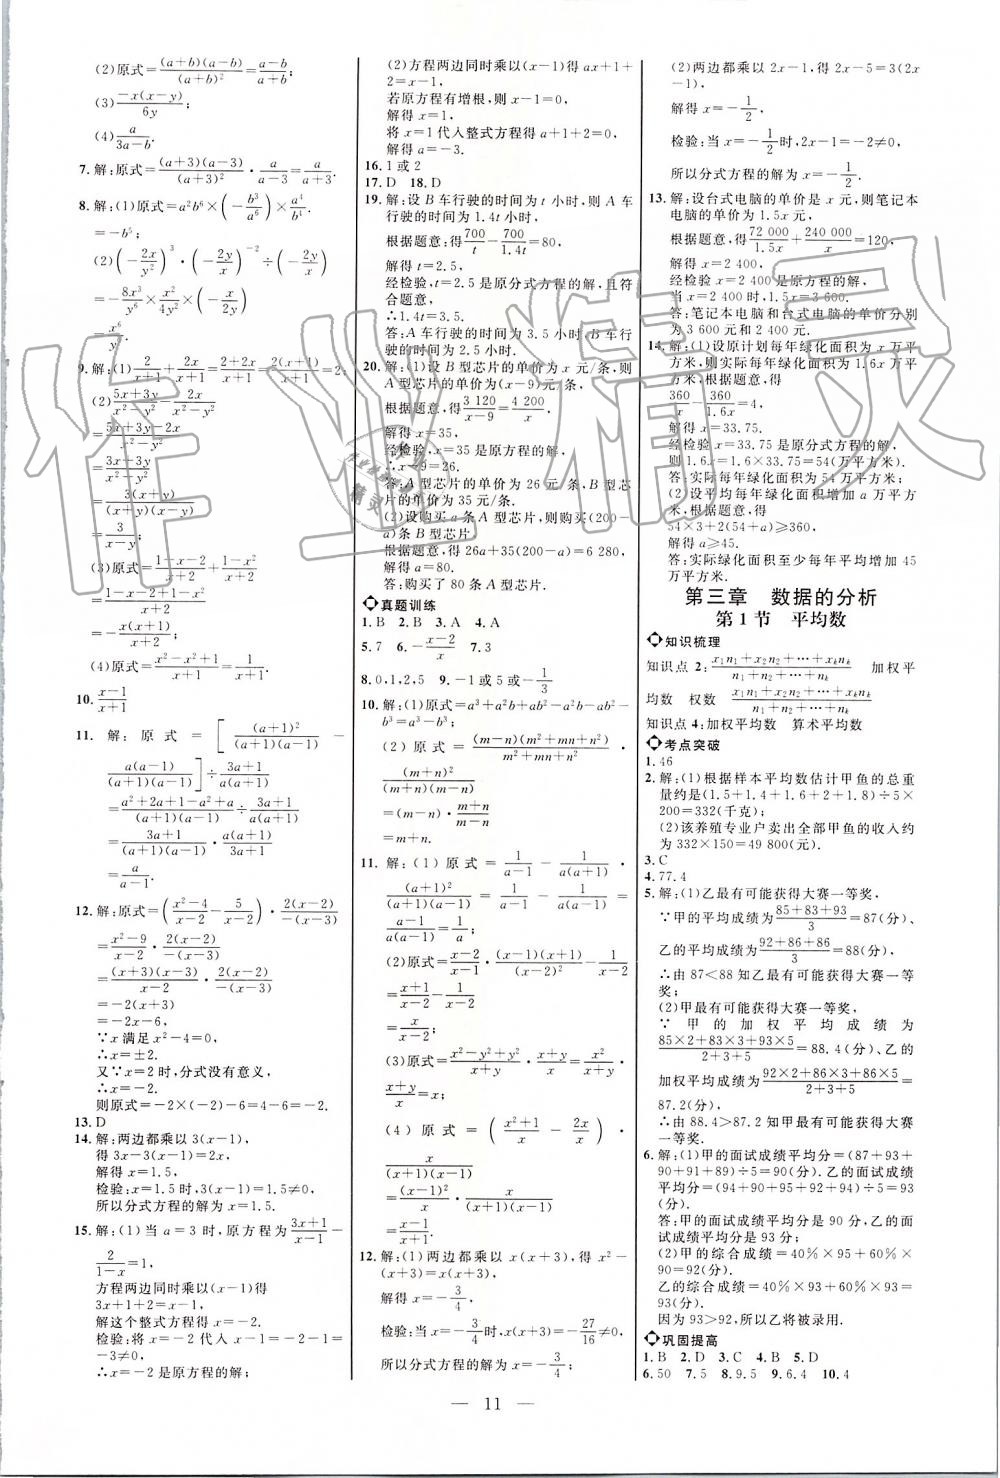 (2)原式=\frac{(a+b)(a-b)}{(a+b)^2}=\frac{a-b}{a+b};
(3)\frac{-x(x-y)}{6y};
(4)\frac{a}{3a-b}.
7.解:原式=\frac{(a+3)(a-3)}{(a+3)^2}·\frac{a}{a-3}=\frac{a}{a+3}.
8.解:(1)原式=a^2b^6×(-\frac{b^3}{a^6})×\frac{a^4}{b^4}.
=-b^5;
(2)(-\frac{2x}{y^2})^3·(-\frac{2y}{x})^{-2}÷(-\frac{2y}{x})
=-\frac{8x^3}{y^6}×\frac{x^2}{4y^2}×(-\frac{x}{2y})
=\frac{x^6}{y^9}.
9.解:(1)\frac{2}{x+1}+\frac{2x}{x+1}=\frac{2+2x}{x+1}=\frac{2(x+1)}{x+1}=2;
(2)\frac{5x+3y}{x^2-y^2}-\frac{2x}{x^2-y^2}
=\frac{5x+3y-2x}{x^2-y^2}
=\frac{3x+3y}{x^2-y^2}
=\frac{3(x+y)}{(x+y)(x-y)}
=\frac{3}{x-y};
(3)原式=\frac{1-x-2}{x+2}+\frac{1-x^2}{x+2}
=\frac{1-x-2+1-x^2}{x+2}
=-\frac{x(x+1)}{x+2};
(4)原式=\frac{x^2-x^2+1}{x+1}=\frac{1}{x+1}.
10.\frac{x-1}{x+1}
11.解:原式=[\frac{(a+1)^2}{(a+1)(a-1)}-
\frac{a(a-1)}{(a+1)(a-1)}]÷\frac{3a+1}{a(a+1)}
=\frac{a^2+2a+1-a^2+a}{(a+1)(a-1)}÷\frac{3a+1}{a(a+1)}
=\frac{3a+1}{(a+1)(a-1)}·\frac{a(a+1)}{3a+1}
=\frac{a}{a-1}.
12.解:原式=(\frac{x^2-4}{x-2}-\frac{5}{x-2})·\frac{2(x-2)}{-(x-3)}
=\frac{x^2-9}{x-2}·\frac{2(x-2)}{-(x-3)}
=\frac{(x+3)(x-3)}{x-2}·\frac{2(x-2)}{-(x-3)}
=-2(x+3)
=-2x-6,
∵x满足x^2-4=0,
∴x=±2.
又∵x=2时,分式没有意义,
∴x=-2.
则原式=-2×(-2)-6=4-6=-2.
13.D
14.解:两边都乘以3(x-1),
得3x-3(x-1)=2x,
解得x=1.5,
检验:x=1.5时,3(x-1)=1.5≠0,
所以分式方程的解为x=1.5.
15.解:(1)当a=3时,原方程为\frac{3x+1}{x-1}-
\frac{2}{1-x}=1,
方程两边同时乘以(x-1)得
3x+1+2=x-1,
解这个整式方程得x=-2.
检验:将x=-2代入x-1=-2-1=
-3≠0,
∴x=-2是原方程的解;
(2)方程两边同时乘以(x-1)得ax+1+
2=x-1,
若原方程有增根,则x-1=0,
解得x=1,
将x=1代入整式方程得a+1+2=0,
解得a=-3.
16.1或2
17.D 18.D
19.解:设B车行驶的时间为t小时,则A车
行驶的时间为1.4t小时,
根据题意:得\frac{700}{t}-\frac{700}{1.4t}=80,
解得t=2.5,
经检验,t=2.5是原分式方程的解,且符
合题意,
∴1.4t=3.5.
答:A车行驶的时间为3.5小时,B车行
驶的时间为2.5小时.
20.解:(1)设B型芯片的单价为x元/条,则
A型芯片的单价为(x-9)元/条,
根据题意,得\frac{3 120}{x-9}=\frac{4 200}{x},
解得x=35,
经检验,x=35是原方程的解,
∴x-9=26.
答:A型芯片的单价为26元/条,B型芯
片的单价为35元/条.
(2)设购买a条A型芯片,则购买(200-
a)条B型芯片,
根据题意,得26a+35(200-a)=6 280,
解得a=80.
答:购买了80条A型芯片.
真题训练
1.B 2.B 3.A 4.A
5.7 6.-\frac{x-2}{x} 7.3
8.0,1,2,5 9.-1或5或-\frac{1}{3}
10.解:(1)原式=a^3+a^2b+ab^2-a^2b-ab^2-
b^3=a^3-b^3;
(2)原式=\frac{(m-n)(m^2+mn+n^2)}{m^2+mn+n^2}·
\frac{(m+n)^2}{(m+n)(m-n)}
=(m-n)·\frac{m+n}{m-n}
=m+n.
11.解:(1)原式=\frac{1}{a-1}-\frac{1}{a(a+1)}·
\frac{(a+1)^2}{(a+1)(a-1)}=\frac{1}{a-1}-\frac{1}{a(a-1)}=
\frac{a-1}{a(a-1)}=\frac{1}{a};
(2)原式=\frac{x-2}{x-1}·\frac{(x-1)(x+1)}{(x-2)^2}-\frac{1}{x-2}
=\frac{x+1}{x-2}-\frac{1}{x-2}
=\frac{x}{x-2};
(3)原式=\frac{x^2-y^2+y^2}{x+y}·\frac{x+y}{x}=\frac{x^2}{x+y}·
\frac{x+y}{x}=x;
(4)原式=(\frac{x^2+1}{x}-\frac{2x}{x})·
\frac{x}{(x+1)(x-1)}
=\frac{(x-1)^2}{x}·\frac{x}{(x+1)(x-1)}
=\frac{x-1}{x+1}.
12.解:(1)两边都乘以x(x+3),得x^2-
(x+3)=x(x+3),
解得x=-\frac{3}{4},
检验:当x=-\frac{3}{4}时,x(x+3)=-\frac{27}{16}≠0,
所以分式方程的解为x=-\frac{3}{4};
(2)两边都乘以2x-1,得2x-5=3(2x
-1),
解得x=-\frac{1}{2},
检验:当x=-\frac{1}{2}时,2x-1=-2≠0,
所以分式方程的解为x=-\frac{1}{2}.
13.解:设台式电脑的单价是x元,则笔记本
电脑的单价为1.5x元,
根据题意得\frac{72 000}{1.5x}+\frac{240 000}{x}=120,
解得x=2 400,
经检验x=2 400是原方程的解,
当x=2 400时,1.5x=3 600.
答:笔记本电脑和台式电脑的单价分别
为3 600元和2 400元.
14.解:(1)设原计划每年绿化面积为x万平
方米,则实际每年绿化面积为1.6x万平
方米,根据题意,得
\frac{360}{x}-\frac{360}{1.6x}=4,
解得x=33.75,
经检验x=33.75是原分式方程的解,
则1.6x=1.6×33.75=54(万平方米).
答:实际每年绿化面积为54万平方米.
(2)设平均每年绿化面积增加a万平方
米,根据题意得
54×3+2(54+a)≥360,
解得a≥45.
答:实际绿化面积至少每年平均增加45
万平方米.
第三章 数据的分析
第1节 平均数
知识梳理
知识点2:\frac{x_1n_1+x_2n_2+…+x_kn_k}{n_1+n_2+…+n_k} 加权平
均数 权数 \frac{x_1n_1+x_2n_2+…+x_kn_k}{n_1+n_2+…+n_k}
知识点4:加权平均数 算术平均数
考点突破
1.46
2.解:(1)根据样本平均数估计甲鱼的总重
量约是(1.5+1.4+1.6+2+1.8)÷5×
200=332(千克);
(2)该养殖专业户卖出全部甲鱼的收入约
为332×150=49 800(元).
3.C
4.77.4
5.解:(1)乙最有可能获得大赛一等奖,
∵甲的平均成绩为\frac{85+83+93}{3}=87(分),
乙的平均成绩为\frac{92+86+86}{3}=88(分),
∴由87<88知乙最有可能获得大赛一等
奖;
(2)甲最有可能获得大赛一等奖,
∵甲的加权平均成绩为
\frac{85×2+83×3+93×5}{2+3+5}=88.4(分),乙的
加权平均成绩为\frac{92×2+86×3+86×5}{2+3+5}=
87.2(分),
∴由88.4>87.2知甲最有可能获得大赛
一等奖.
6.解:(1)甲的面试成绩平均分=(87+94+
90+91+88)÷5=90(分),乙的面试成绩
平均分=(94+90+95+92+94)÷5=93
(分).
答:甲的面试成绩平均分是90分,乙的面
试成绩平均分是93分;
(2)甲的综合成绩=40%×95+60%×
90=92(分),
乙的综合成绩=40%×93+60%×93=
93(分).
因为93>92,所以乙将被录用.
巩固提高
1.B 2.D 3.C 4.B 5.D
6.50 7.5 8.9.5 9.6.4 10.4
— 11 —
作业精灵